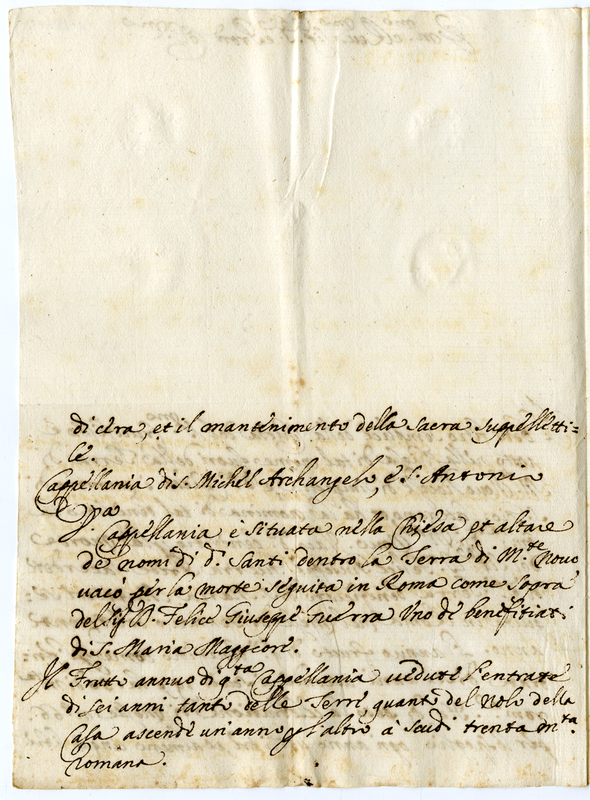 di cera, et il mantenimento della sacra suppelletti=
le.
Cappellania di S. Michel Archangelo, e S. Antonio
Cappellania è situata nella Chiesa, et altare
de nomi di d.i Santi dentro la Terra di M.te Novo
vacò per la morte seguita in Roma come sopra
del Sig.r D. Felice Giuseppe Guerra Uno de benefitiati
di S. Maria Maggiore.
Il Frutto annuo di q.ta Cappellania vedute l'entrate
di sei anni tanto delle Terre, quanto del Nolo della
Casa ascende un'anno p l'altro à scudi trenta m.ta
Romana.